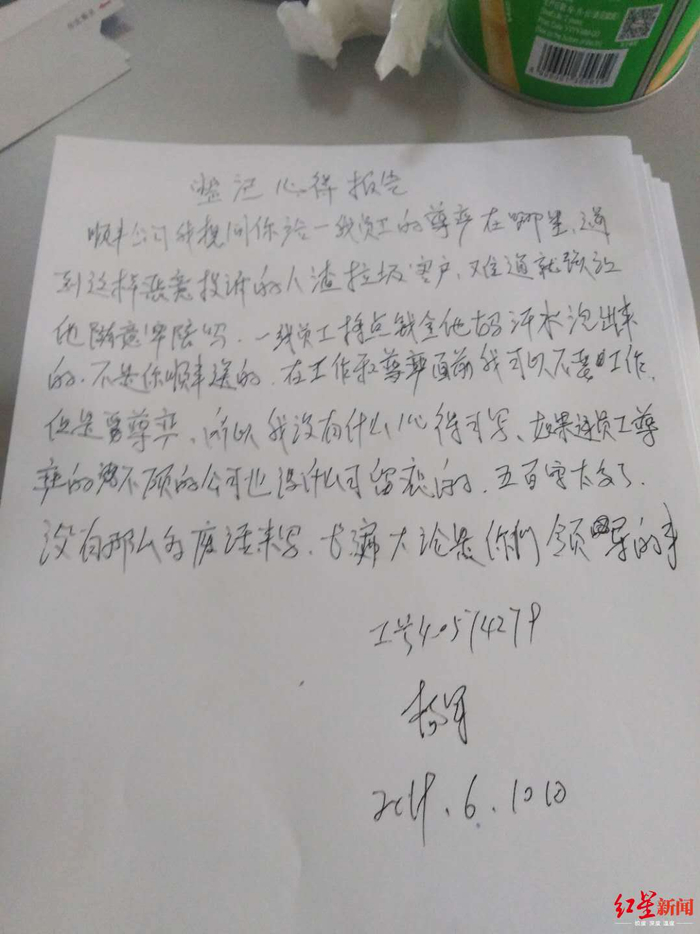 整记心得报告
顺丰公司我想问你给一线员工的尊严在哪里、遇
到这样恶意投诉的人渣垃圾客户、难道就该让
他随意 吗、一线员工挣点钱全他妈汗水泡出来
的、不是你顺丰送的、在工作和尊严面前我可以不要工作、
但是要尊严、所以我没有什么心得可写、如果连员工尊
严的都不顾的公司也没什么可留恋的、五百字太多了、
没有那么多废话来写、长篇大论是你们领导的事
工号40574279
杨军
6.10日
红星新闻